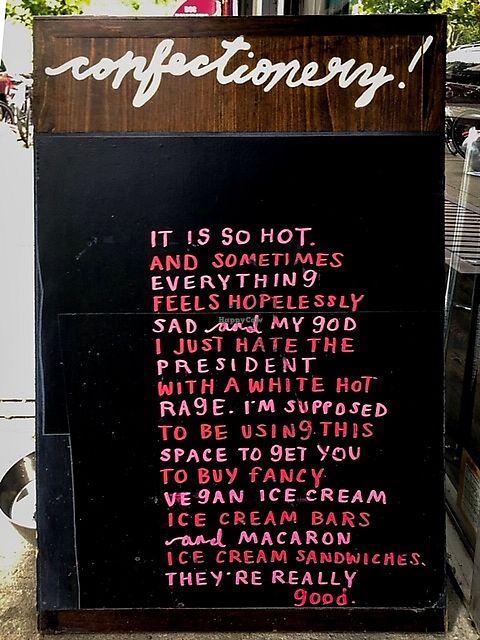 confectionery!
IT IS SO HOT.
AND SOMETIMES
EVERYTHING
FEELS HOPELESSLY
SAD and MY GOD
I JUST HATE THE
PRESIDENT
WITH A WHITE HOT
RAGE. I'M SUPPOSED
TO BE USING THIS
SPACE TO GET YOU
TO BUY FANCY
VEGAN ICE CREAM
ICE CREAM BARS
and MACARON
ICE CREAM SANDWICHES.
THEY'RE REALLY
good.
HappyCow